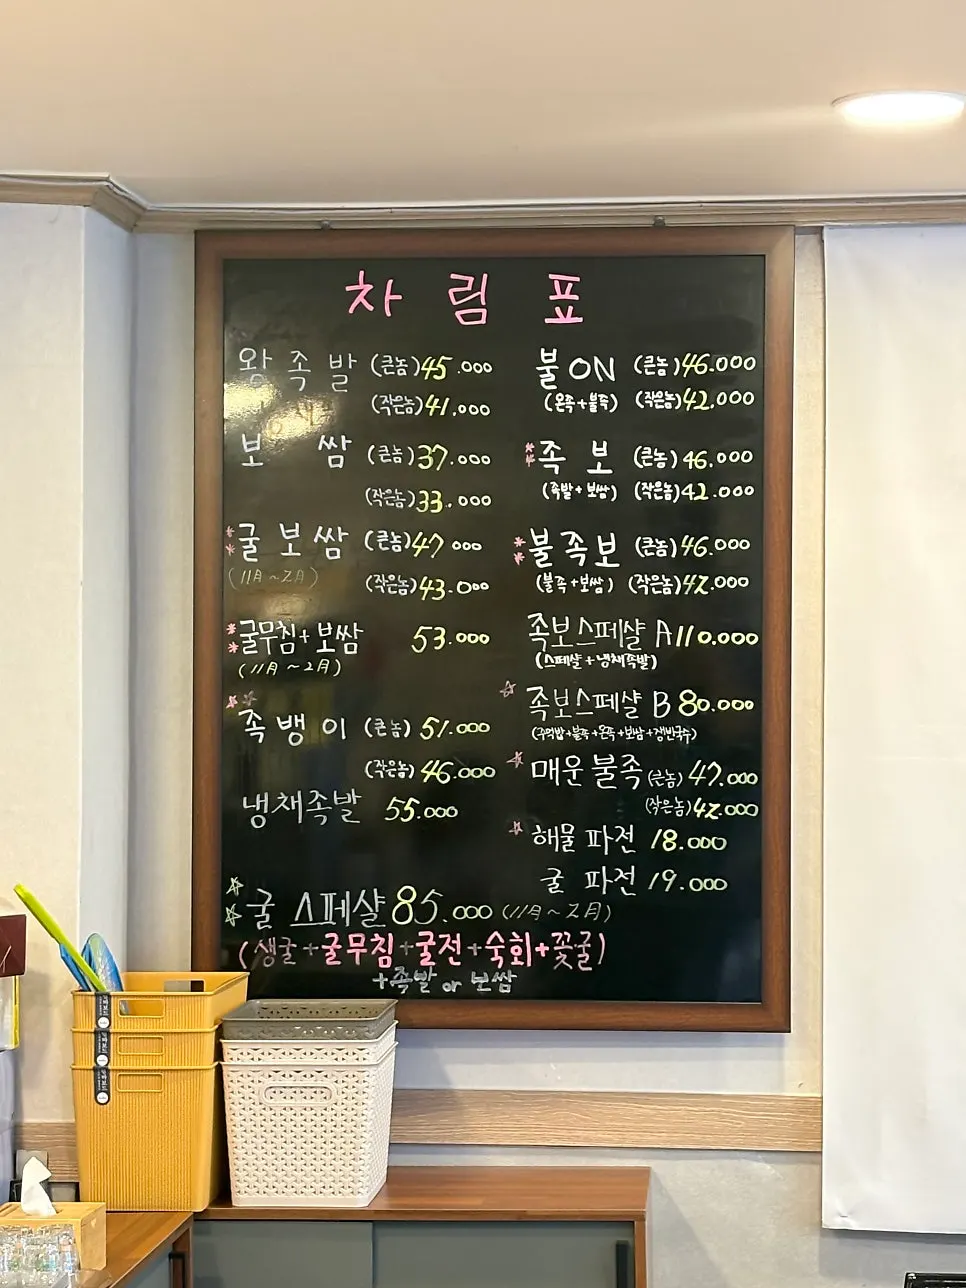 차림표
왕족발 (큰놈) 45.000
(작은놈) 41.000
보쌈 (큰놈) 37.000
(작은놈) 33.000
굴보쌈 (큰놈) 47 000
(11月~2月) (작은놈) 43.000
굴무침+보쌈 53.000
(11月~2月)
족뱅이 (큰놈) 51.000
(작은놈) 46.000
냉채족발 55.000
불ON (큰놈) 46.000
(온족+불족) (작은놈) 42.000
족보 (큰놈) 46.000
(족발+보쌈) (작은놈) 42.000
불족보 (큰놈) 46.000
(불족+보쌈) (작은놈) 42.000
족보스페샬 A 110.000
(스페샬+냉채족발)
족보스페샬 B 80.000
(주먹밥+불족+온족+보쌈+쟁반국수)
매운불족 (큰놈) 47.000
(작은놈) 42.000
해물파전 18.000
굴파전 19.000
굴스페샬 85.000 (11月~2月)
(생굴+굴무침+굴전+숙회+꽃굴)
+족발 or 보쌈